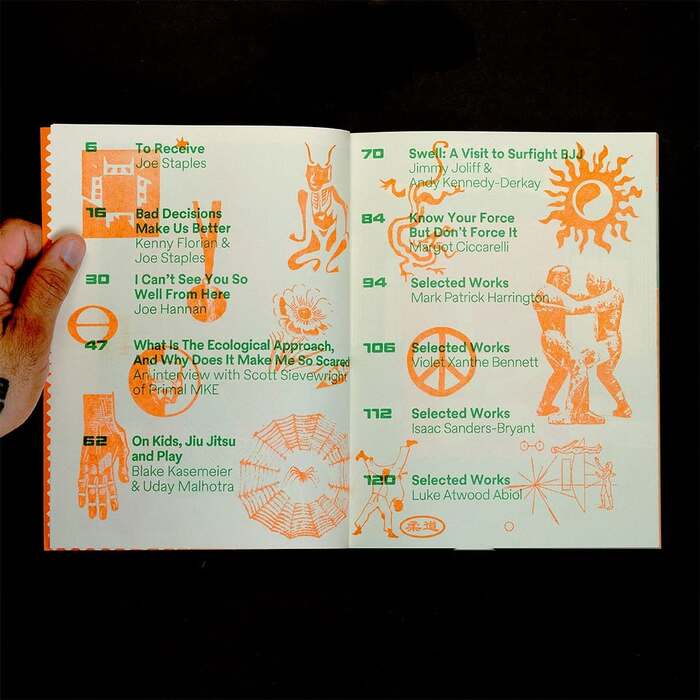 6 To Receive
Joe Staples
16 Bad Decisions
Make Us Better
Kenny Florian &
Joe Staples
30 I Can't See You So
Well From Here
Joe Hannan
47 What Is The Ecological Approach,
And Why Does It Make Me So Scared
An interview with Scott Sievewright
of Primal MKE
62 On Kids, Jiu Jitsu
and Play
Blake Kasemeier
& Uday Malhotra
70 Swell: A Visit to Surfight BJJ
Jimmy Joliff &
Andy Kennedy-Derkay
84 Know Your Force
But Don't Force It
Margot Ciccarelli
94 Selected Works
Mark Patrick Harrington
106 Selected Works
Violet Xanthe Bennett
112 Selected Works
Isaac Sanders-Bryant
120 Selected Works
Luke Atwood Abiol
柔道